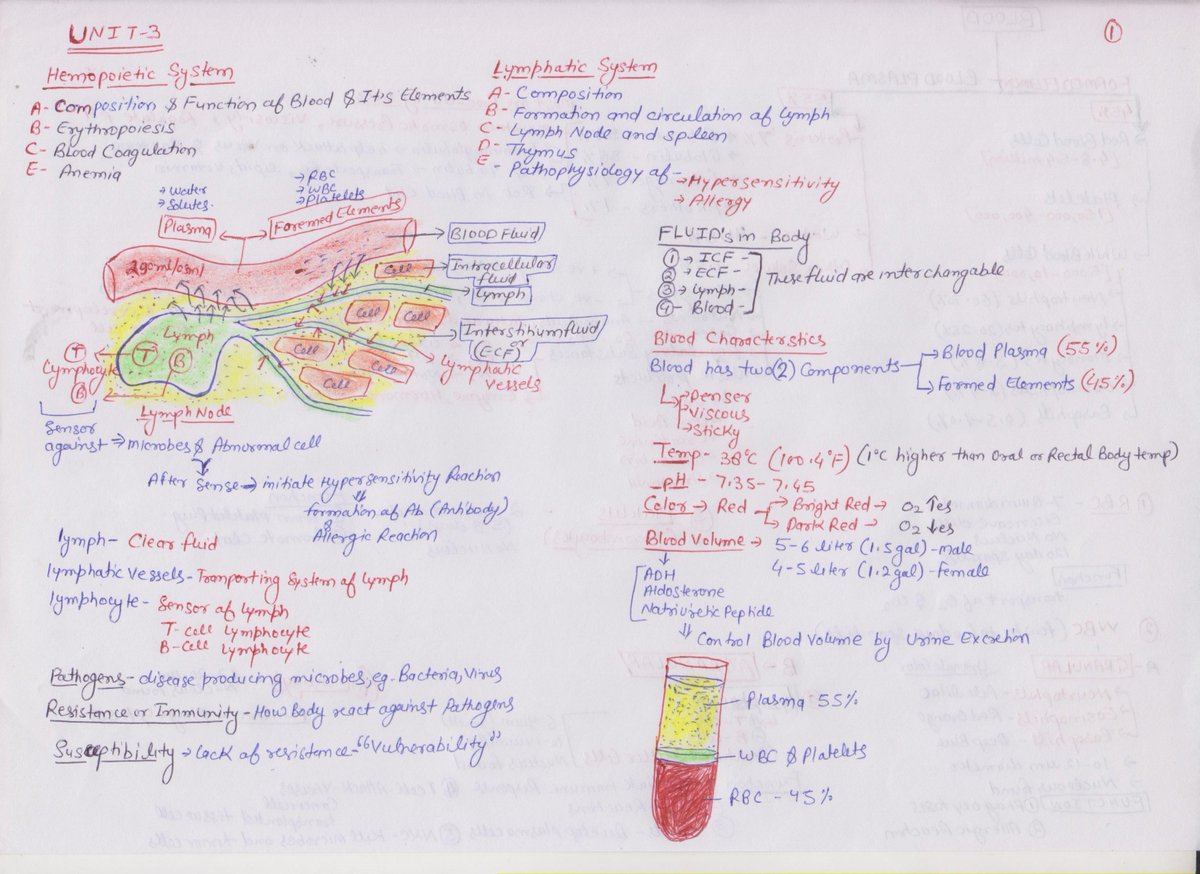 UNIT-3
①
Hemopoietic System
A- Composition & Function of Blood & It's Elements
B- Erythropoiesis
C- Blood Coagulation
E- Anemia
Lymphatic System
A- Composition
B- Formation and circulation of Lymph
C- Lymph Node and spleen
D- Thymus
E- Pathophysiology of → Hypersensitivity
→ Allergy
→ Water
→ Solutes
→ RBC
→ WBC
→ Platelets
Plasma
Foremed Elements
BLOOD Fluid
Intracellular fluid
Lymph
Interstitium fluid
or
(ECF)
Lymphatic vessels
290 ml/osml
Cell
Cell
Cell
Cell
Cell
Cell
Lymph
T
B
T
Lymphocyte
B
Lymph Node
Sensor
against → microbes & Abnormal cell
After Sense → initiate Hypersensitivity Reaction
⇓
formation of Ab (Antibody)
&
Allergic Reaction
lymph- Clear fluid
lymphatic vessels- Tranporting System of lymph
lymphocyte- Sensor of lymph
T-cell lymphocyte
B-Cell lymphocyte
Pathogens- disease producing microbes, eg. Bacteria, Virus
Resistance or Immunity - How Body react against Pathogens
Susceptibility → lack of resistance- "Vulnerability"
FLUID's in Body
① → ICF -
② → ECF -
③ → Lymph -
④ - Blood -
These fluid are interchangable
Blood Characteristics
Blood has two (2) Components → Blood Plasma (55%)
→ Formed Elements (45%)
→ Denser
→ Viscous
→ Sticky
Temp- 38°C (100.4°F) (1°C higher than Oral or Rectal Body temp)
-pH - 7.35- 7.45
Color → Red → Bright Red → O2 ↑es
→ Dark Red → O2 ↓es
Blood Volume → 5-6 liter (1.5 gal) - male
4-5 liter (1.2 gal) - female
ADH
Aldosterone
Natriuretic Peptide
⇓ Control Blood Volume by Urine Excretion
Plasma 55%
WBC & Platelets
RBC - 45%